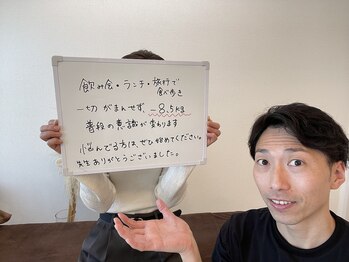 飲み会・ランチ・旅行で
食べ歩き
一切がまんせず、-8.5kg
普段の意識が変わります
悩んでる方は、ぜひ始めてください。
先生ありがとうございました。